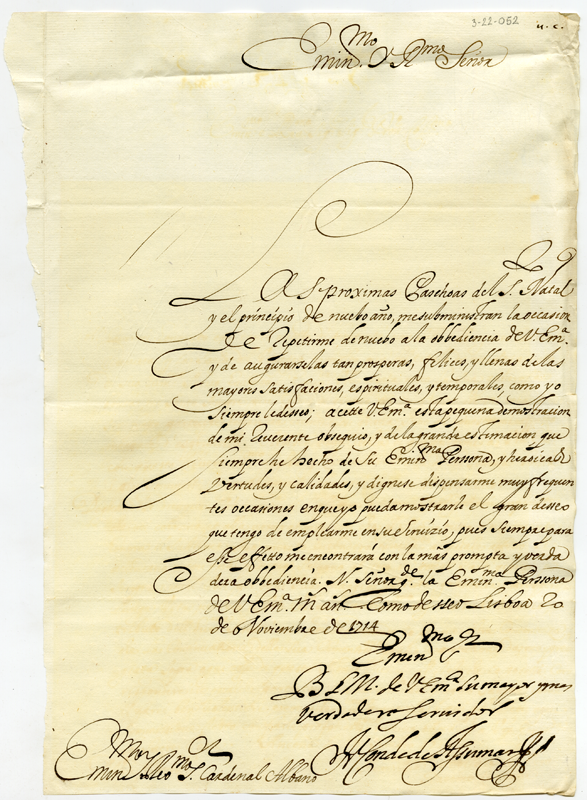 3-22-052 n.c.
Emin.mo y R.mo Señor
Las proximas Paschoas del S. Natal
y el principio de nuebo año, me subministran la occasion
de repetirme de nuebo a la obbediencia de V Em.a
y de augurarselas tan prosperas, felices, y llenas de las
mayores satisfaciones, espirituales, y temporales, como yo
siempre le desseo; acette V Em.a esta pequena demostracion
de mi reverente obsequio, y de la grande estimacion que
siempre he hecho de Su Emin.ma Persona, y heroicas
vertudes, y calidades, y dignese dispensarme muy frequen
tes occasiones en que yo pueda mostrarle el gran desseo
que tengo de emplearme en su servizio, pues siempre para
esse effetto me encontrará con la más prompta y verda
dera obbediencia. N. Señor g.de la Emin.ma Persona
de V Em.a m. añ. como desseo Lisboa 20
de Noviembre de 1714
Emin.mo S.r
B L M. de V Em.a su mayor y mas
verdadero servidor
Conde de Assumar
Emin.mo y R.mo S. Cardenal Albano